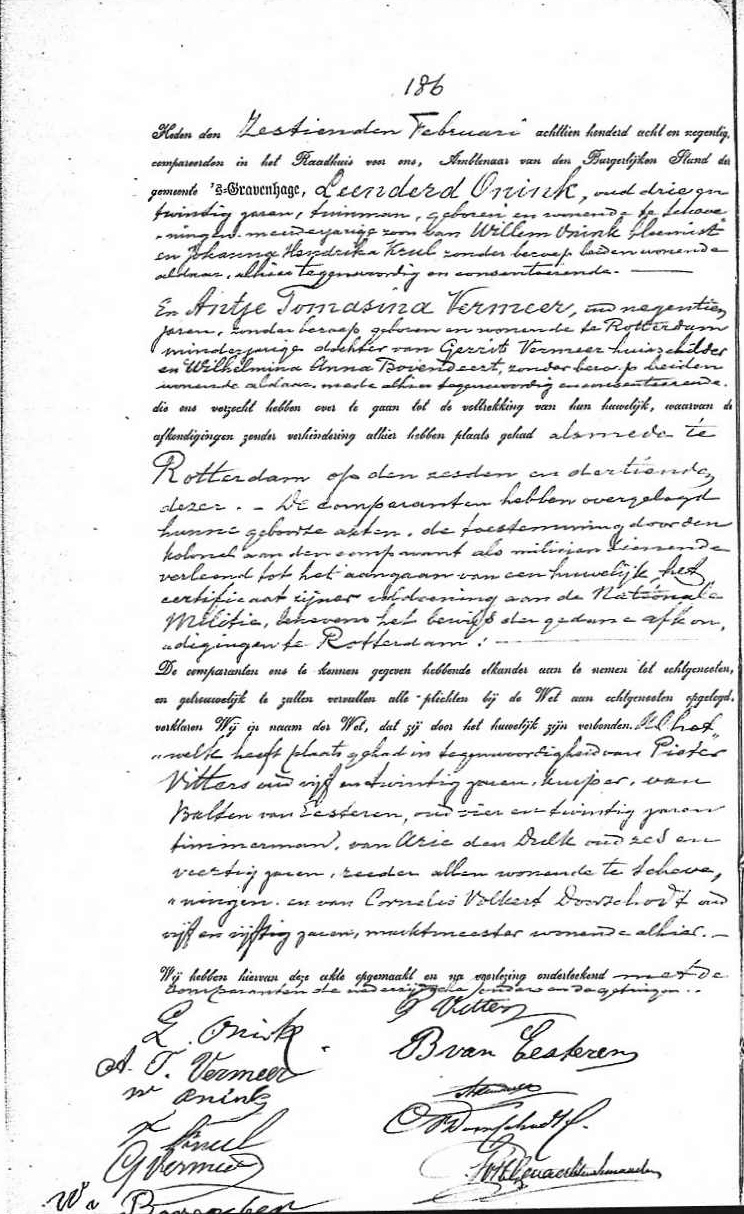 186
Heden den Zestienden Februari achttien honderd acht en negentig,
compareerden in het Raadhuis voor ons, Ambtenaar van den Burgerlijken Stand der
gemeente 's-Gravenhage, Leenderd Onink, oud drie en
twintig jaren, tuinman, geboren en wonende te Scheve
ningen, meerderjarige zoon van Willem Onink bloemist
en Johanna Hendrika Krul zonder beroep beiden wonende
aldaar, alhier tegenwoordig en consenteerende.
En Antje Tomasina Vermeer, oud negentien
jaren, zonder beroep geboren en wonende te Rotterdam
minderjarige dochter van Gerrit Vermeer huisschilder
en Wilhelmina Anna Bovendeert, zonder beroep beiden
wonende aldaar, mede alhier tegenwoordig en consenteerende.
die ons verzocht hebben over te gaan tot de voltrekking van hun huwelijk, waarvan de
afkondigingen zonder verhindering alhier hebben plaats gehad alsmede te
Rotterdam op den zesden en dertienden
dezer. – De comparanten hebben overgelegd
hunne geboorte akten, de toestemming door den
kolonel aan den comparant als milicien dienende
verleend tot het aangaan van een huwelijk, het
certificaat zijner voldoening aan de Nationale
Militie, benevens het bewijs der gedane afkon„
digingen te Rotterdam.
De comparanten ons te kennen gegeven hebbende elkander aan te nemen tot echtgenooten,
en getrouwelijk te zullen vervullen alle plichten bij de Wet aan echtgenooten opgelegd,
verklaren Wij in naam der Wet, dat zij door het huwelijk zijn verbonden. Al het„
„welk heeft plaats gehad in tegenwoordigheid van Pieter
Vitters oud vijf en twintig jaren, kuiper, van
Balten van Eesteren, oud vier en twintig jaren
timmerman, van Arie den Dulk oud zes en
veertig jaren, reeder allen wonende te Scheve„
„ningen. en van Cornelis Volkert Doorschodt oud
vijf en vijftig jaren, marktmeester wonende alhier. –
Wij hebben hiervan deze akte opgemaakt en na voorlezing onderteekend met de
comparanten de en getuigen.
L. Onink
P Vitters
A. T. Vermeer
B van Eesteren
W Onink
Krul
G Vermeer